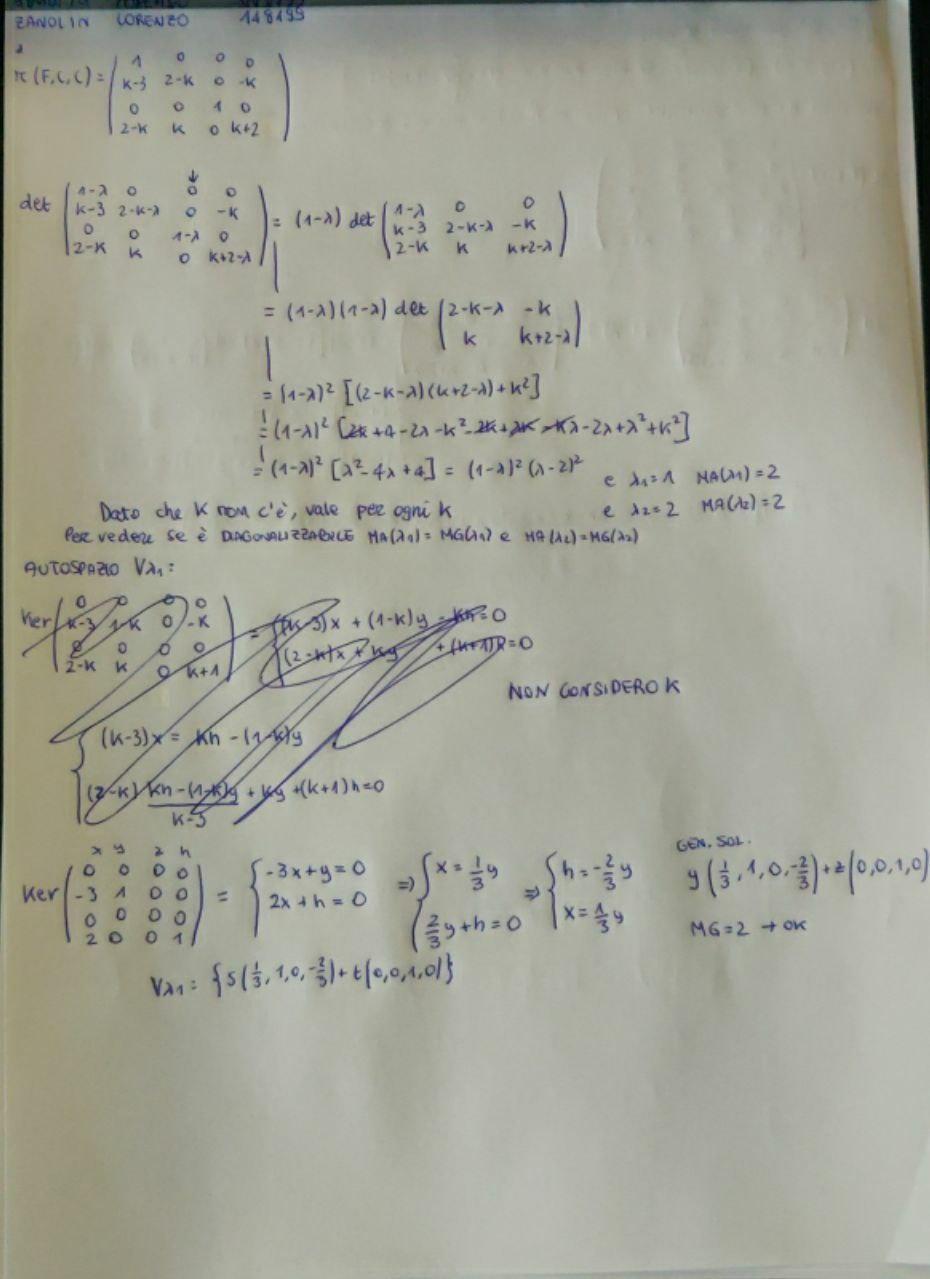 ZANOLIN LORENZO 148199
M(F,C,C) = ( 1 0 0 0
k-3 2-k 0 -k
0 0 1 0
2-k k 0 k+2 )
↓
det ( 1-λ 0 0 0
k-3 2-k-λ 0 -k
0 0 1-λ 0
2-k k 0 k+2-λ ) = (1-λ) det ( 1-λ 0 0
k-3 2-k-λ -k
2-k k k+2-λ )
= (1-λ)(1-λ) det ( 2-k-λ -k
k k+2-λ )
= (1-λ)² [(2-k-λ)(k+2-λ)+k²]
= (1-λ)² [2k+4-2λ-k²-2k+λk-kλ-2λ+λ²+k²]
= (1-λ)² [λ²-4λ+4] = (1-λ)² (λ-2)² e λ₁=1 MA(λ₁)=2
Dato che k non c'è, vale per ogni k e λ₂=2 MA(λ₂)=2
Per vedere se è DIAGONALIZZABILE MA(λ₁)=MG(λ₁) e MA(λ₂)=MG(λ₂)
AUTOSPAZIO Vλ₁:
Ker ( 0 0 0 0
k-3 1-k 0 -k
0 0 0 0
2-k k 0 k+1 ) = { (k-3)x + (1-k)y - kh = 0
(2-k)x + ky + (k+1)h = 0
NON CONSIDERO K
{ (k-3)x = kh - (1-k)y
(2-k) kh-(1-k)y / k-3 + ky + (k+1)h = 0
x y z h
Ker ( 0 0 0 0
-3 1 0 0
0 0 0 0
2 0 0 1 ) = { -3x+y=0
2x+h=0 ⇒ { x = 1/3 y
2/3 y+h=0 ⇒ { h = -2/3 y
x = 1/3 y
GEN. SOL.
y(1/3, 1, 0, -2/3)+z(0,0,1,0)
MG=2 → OK
Vλ₁ = {s(1/3, 1, 0, -2/3)+t(0,0,1,0)}